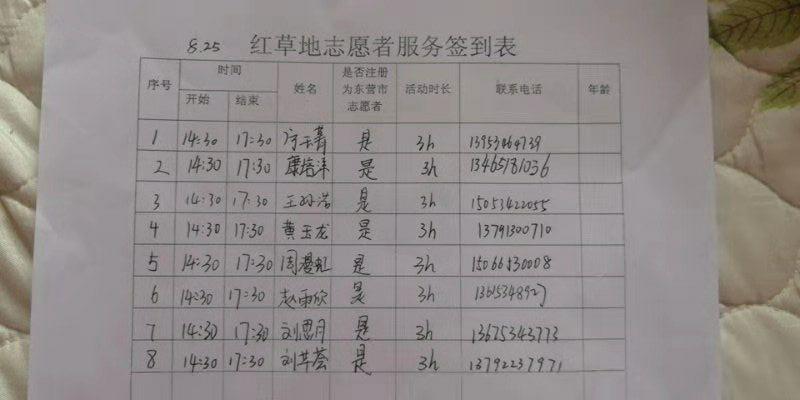 8.25 红草地志愿者服务签到表
序号 时间 姓名 是否注册为东营市志愿者 活动时长 联系电话 年龄
开始 结束
1 14:30 17:30 是 3h
2 14:30 17:30 康培沣 是 3h 13465181036
3 14:30 17:30 王孙浩 是 3h 15053422055
4 14:30 17:30 黄玉龙 是 3h 13791300710
5 14:30 17:30 周漫虹 是 3h
6 14:30 17:30 赵雨欣 是 3h
7 14:30 17:30 刘思月 是 3h 13675343773
8 14:30 17:30 刘芊荟 是 3h 13792237971